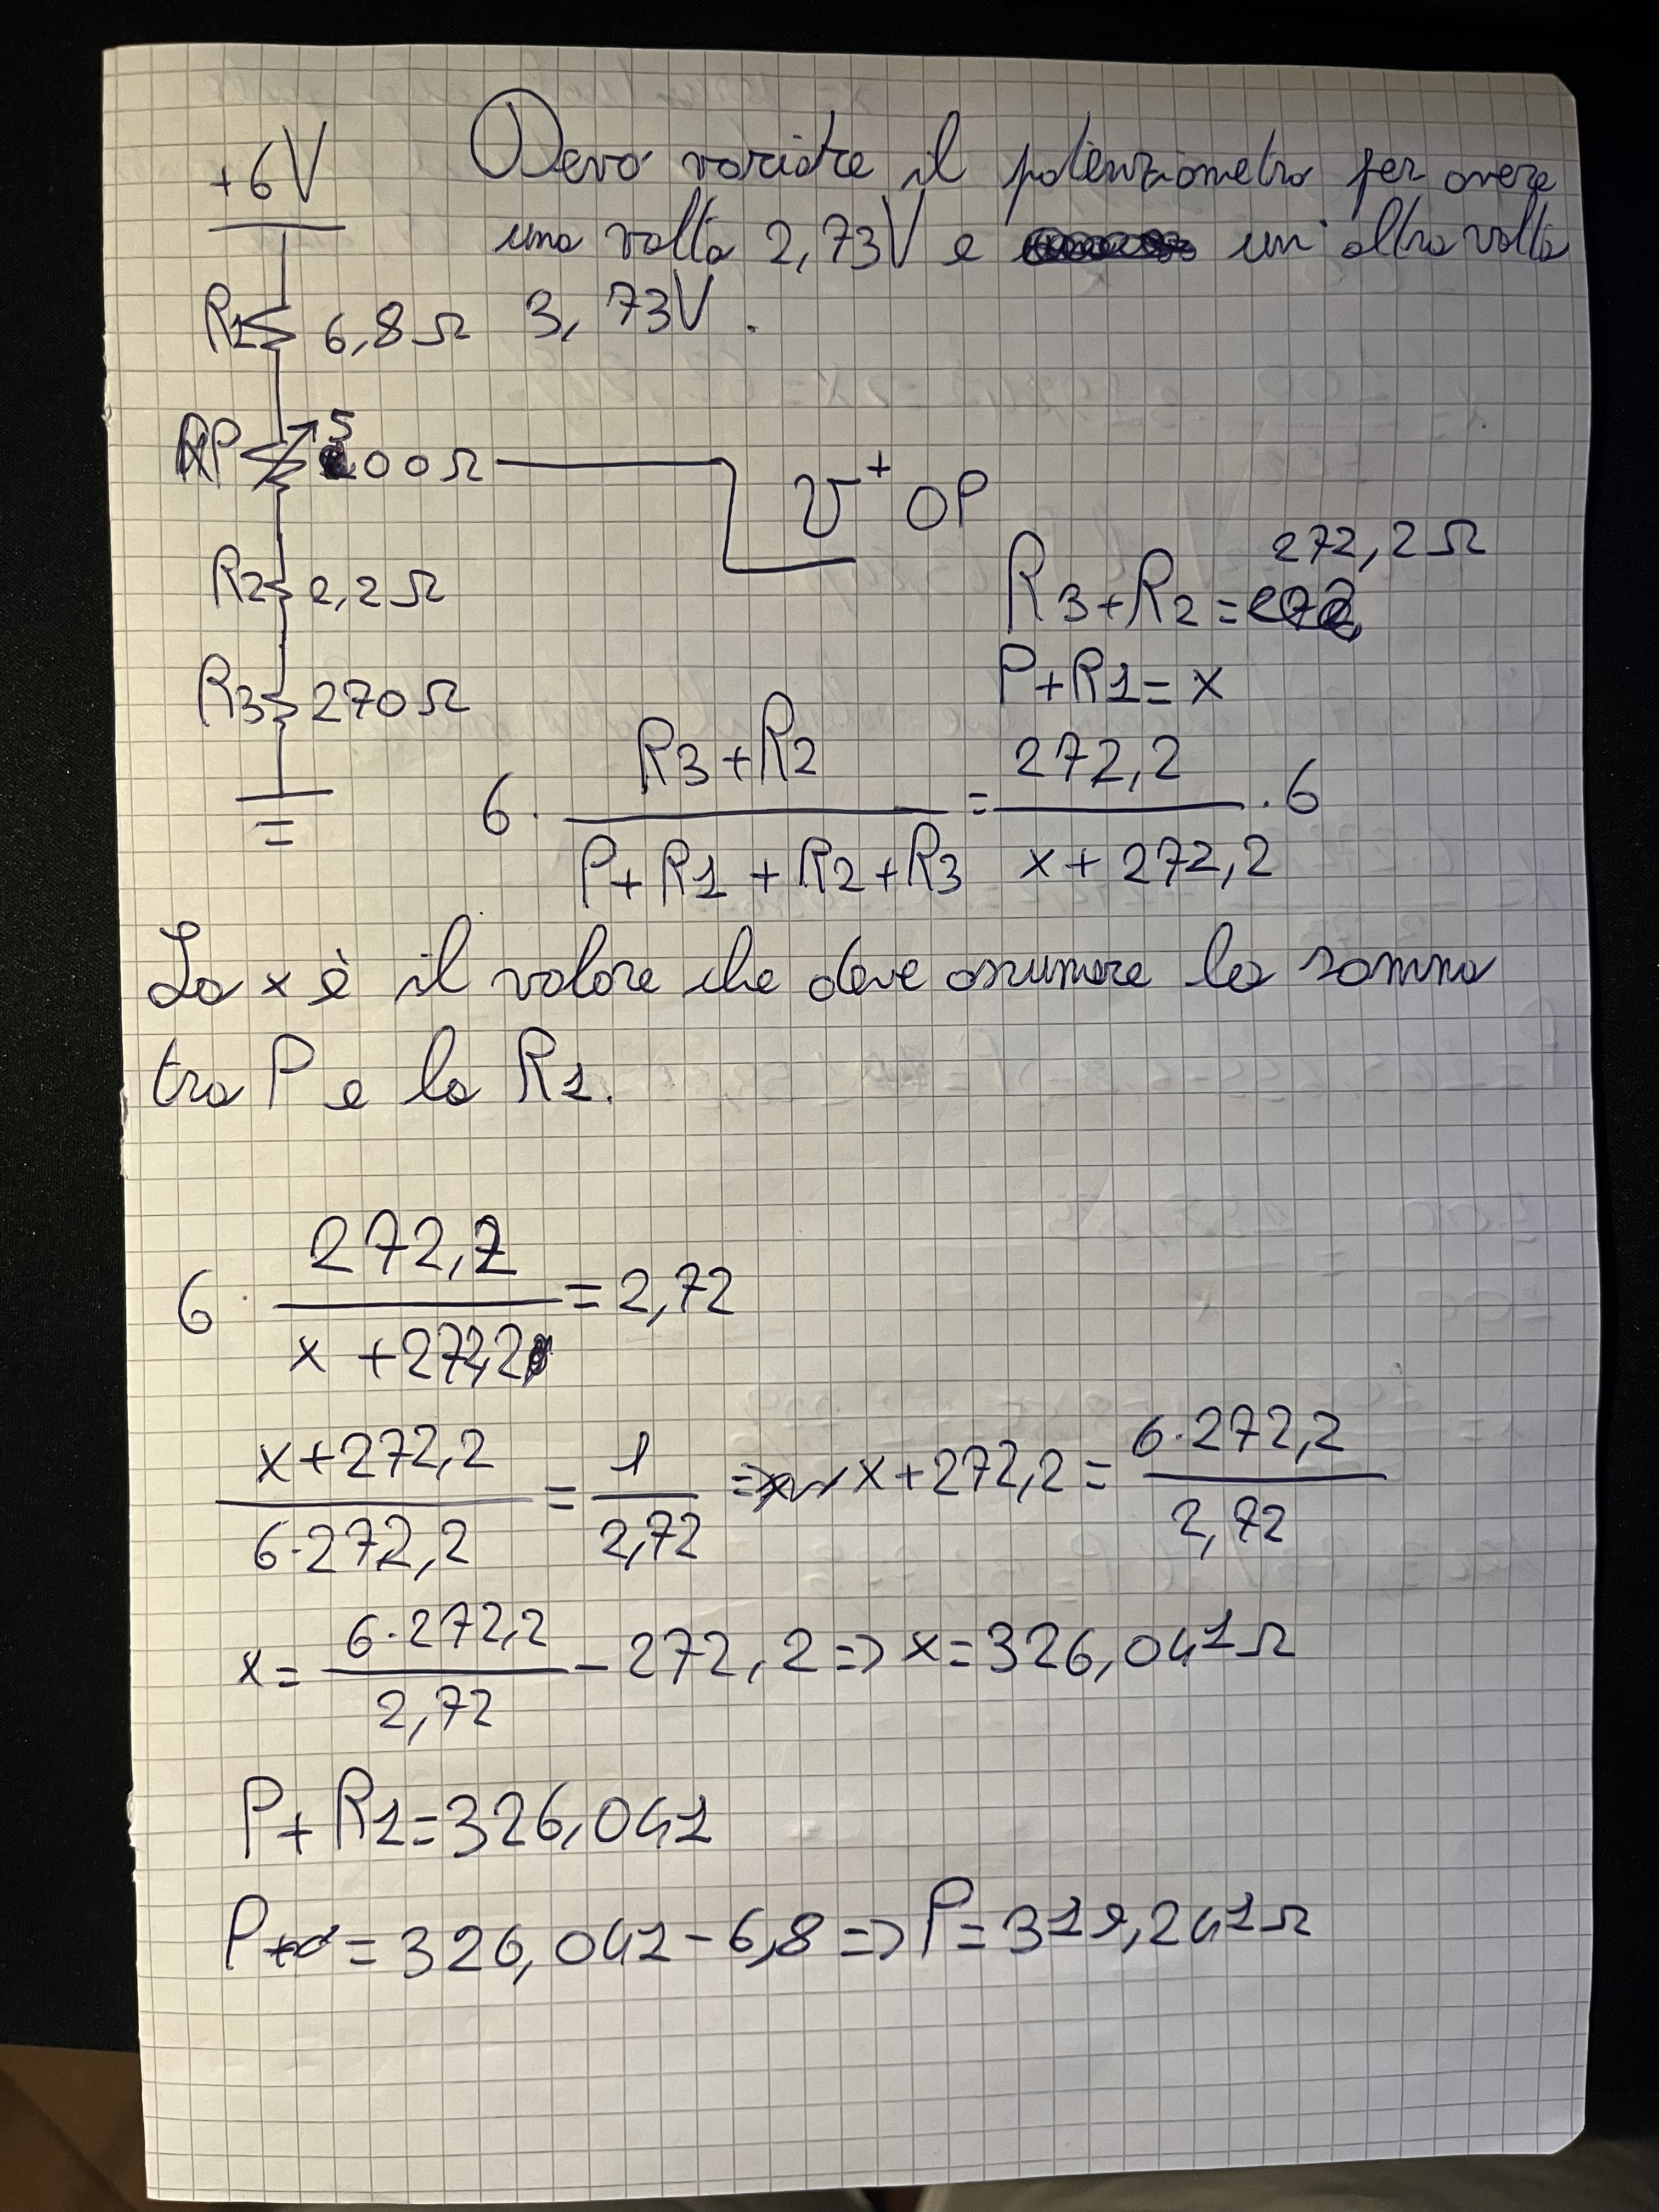 +6V
Devo variare il potenziometro per avere
una volta 2,73V e un'altra volta
3,73V.
R1 6,8Ω
P 500Ω
V⁺ OP
R2 2,2Ω
R3 270Ω
272,2Ω
R3+R2=
P+R1=x
6 · (R3+R2)/(P+R1+R2+R3) = 272,2/(x+272,2) · 6
La x è il valore che deve assumere la somma
tra P e la R1.
6 · 272,2/(x+272,2) = 2,72
(x+272,2)/(6·272,2) = 1/2,72 => x+272,2 = (6·272,2)/2,72
x = (6·272,2)/2,72 - 272,2 => x=326,041Ω
P+R1=326,041
P = 326,041-6,8 => P=319,241Ω